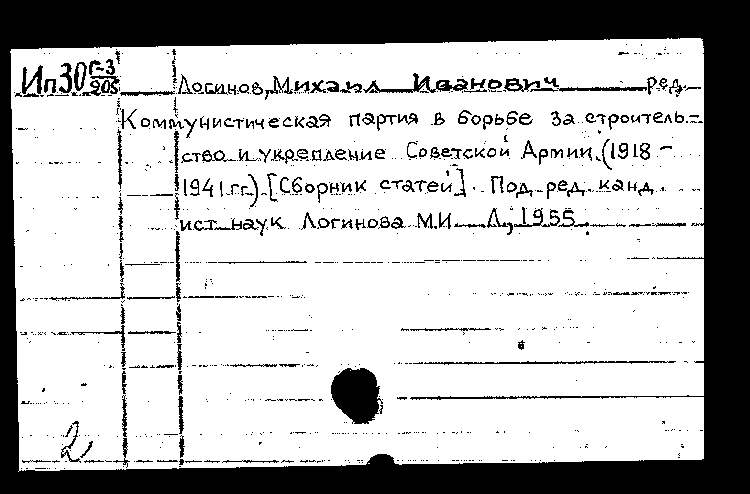 Ип30 Г-3/905 Логинов, Михаил Иванович ред.
Коммунистическая партия в борьбе за строитель-
ство и укрепление Советской Армии. (1918-
1941 гг.) [Сборник статей]. Под ред. канд.
ист. наук Логинова М.И. Л., 1955.
2